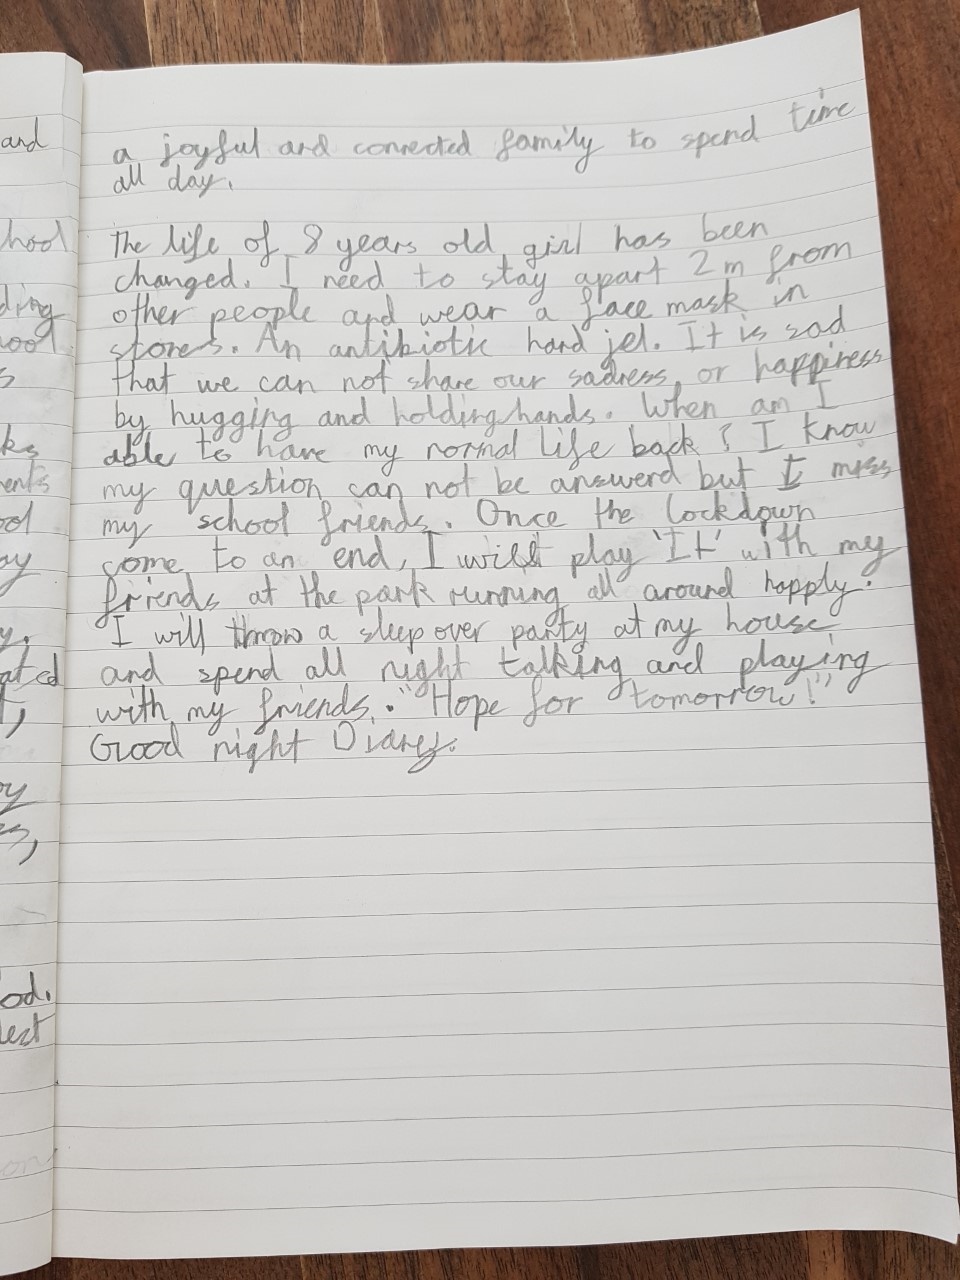 and
hool
ding
ool
s
ks
ents
ool
ay
y,
ated
t,
oy
es,
od.
lest
a joyful and connected family to spend time
all day.
The life of 8 years old girl has been
changed. I need to stay apart 2m from
other people and wear a face mask in
stores. An antibiotic hand jel. It is sad
that we can not share our sadness, or happiness
by hugging and holding hands. When am I
able to have my normal life back? I know
my question can not be answerd but I miss
my school friends. Once the lockdown
come to an end, I will play 'It' with my
friends at the park running all around happly.
I will throw a sleep over party at my house,
and spend all night talking and playing
with my friends. "Hope for tomorrow!"
Good night Diary.